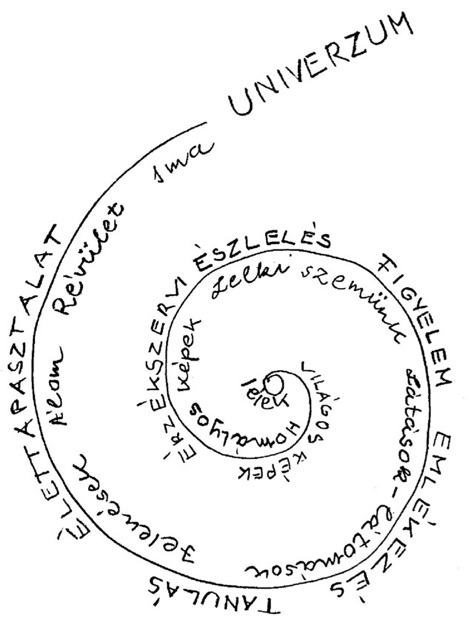 UNIVERZUM
ima
Révület
Álom
ÉLETTAPASZTALAT
Jelenések
TANULÁS
Látások-látomások
EMLÉKEZÉS
FIGYELEM
Lelki szemünk
ÉRZÉKSZERVI ÉSZLELÉS
Homályos képek
VILÁGOS KÉPEK
lélek